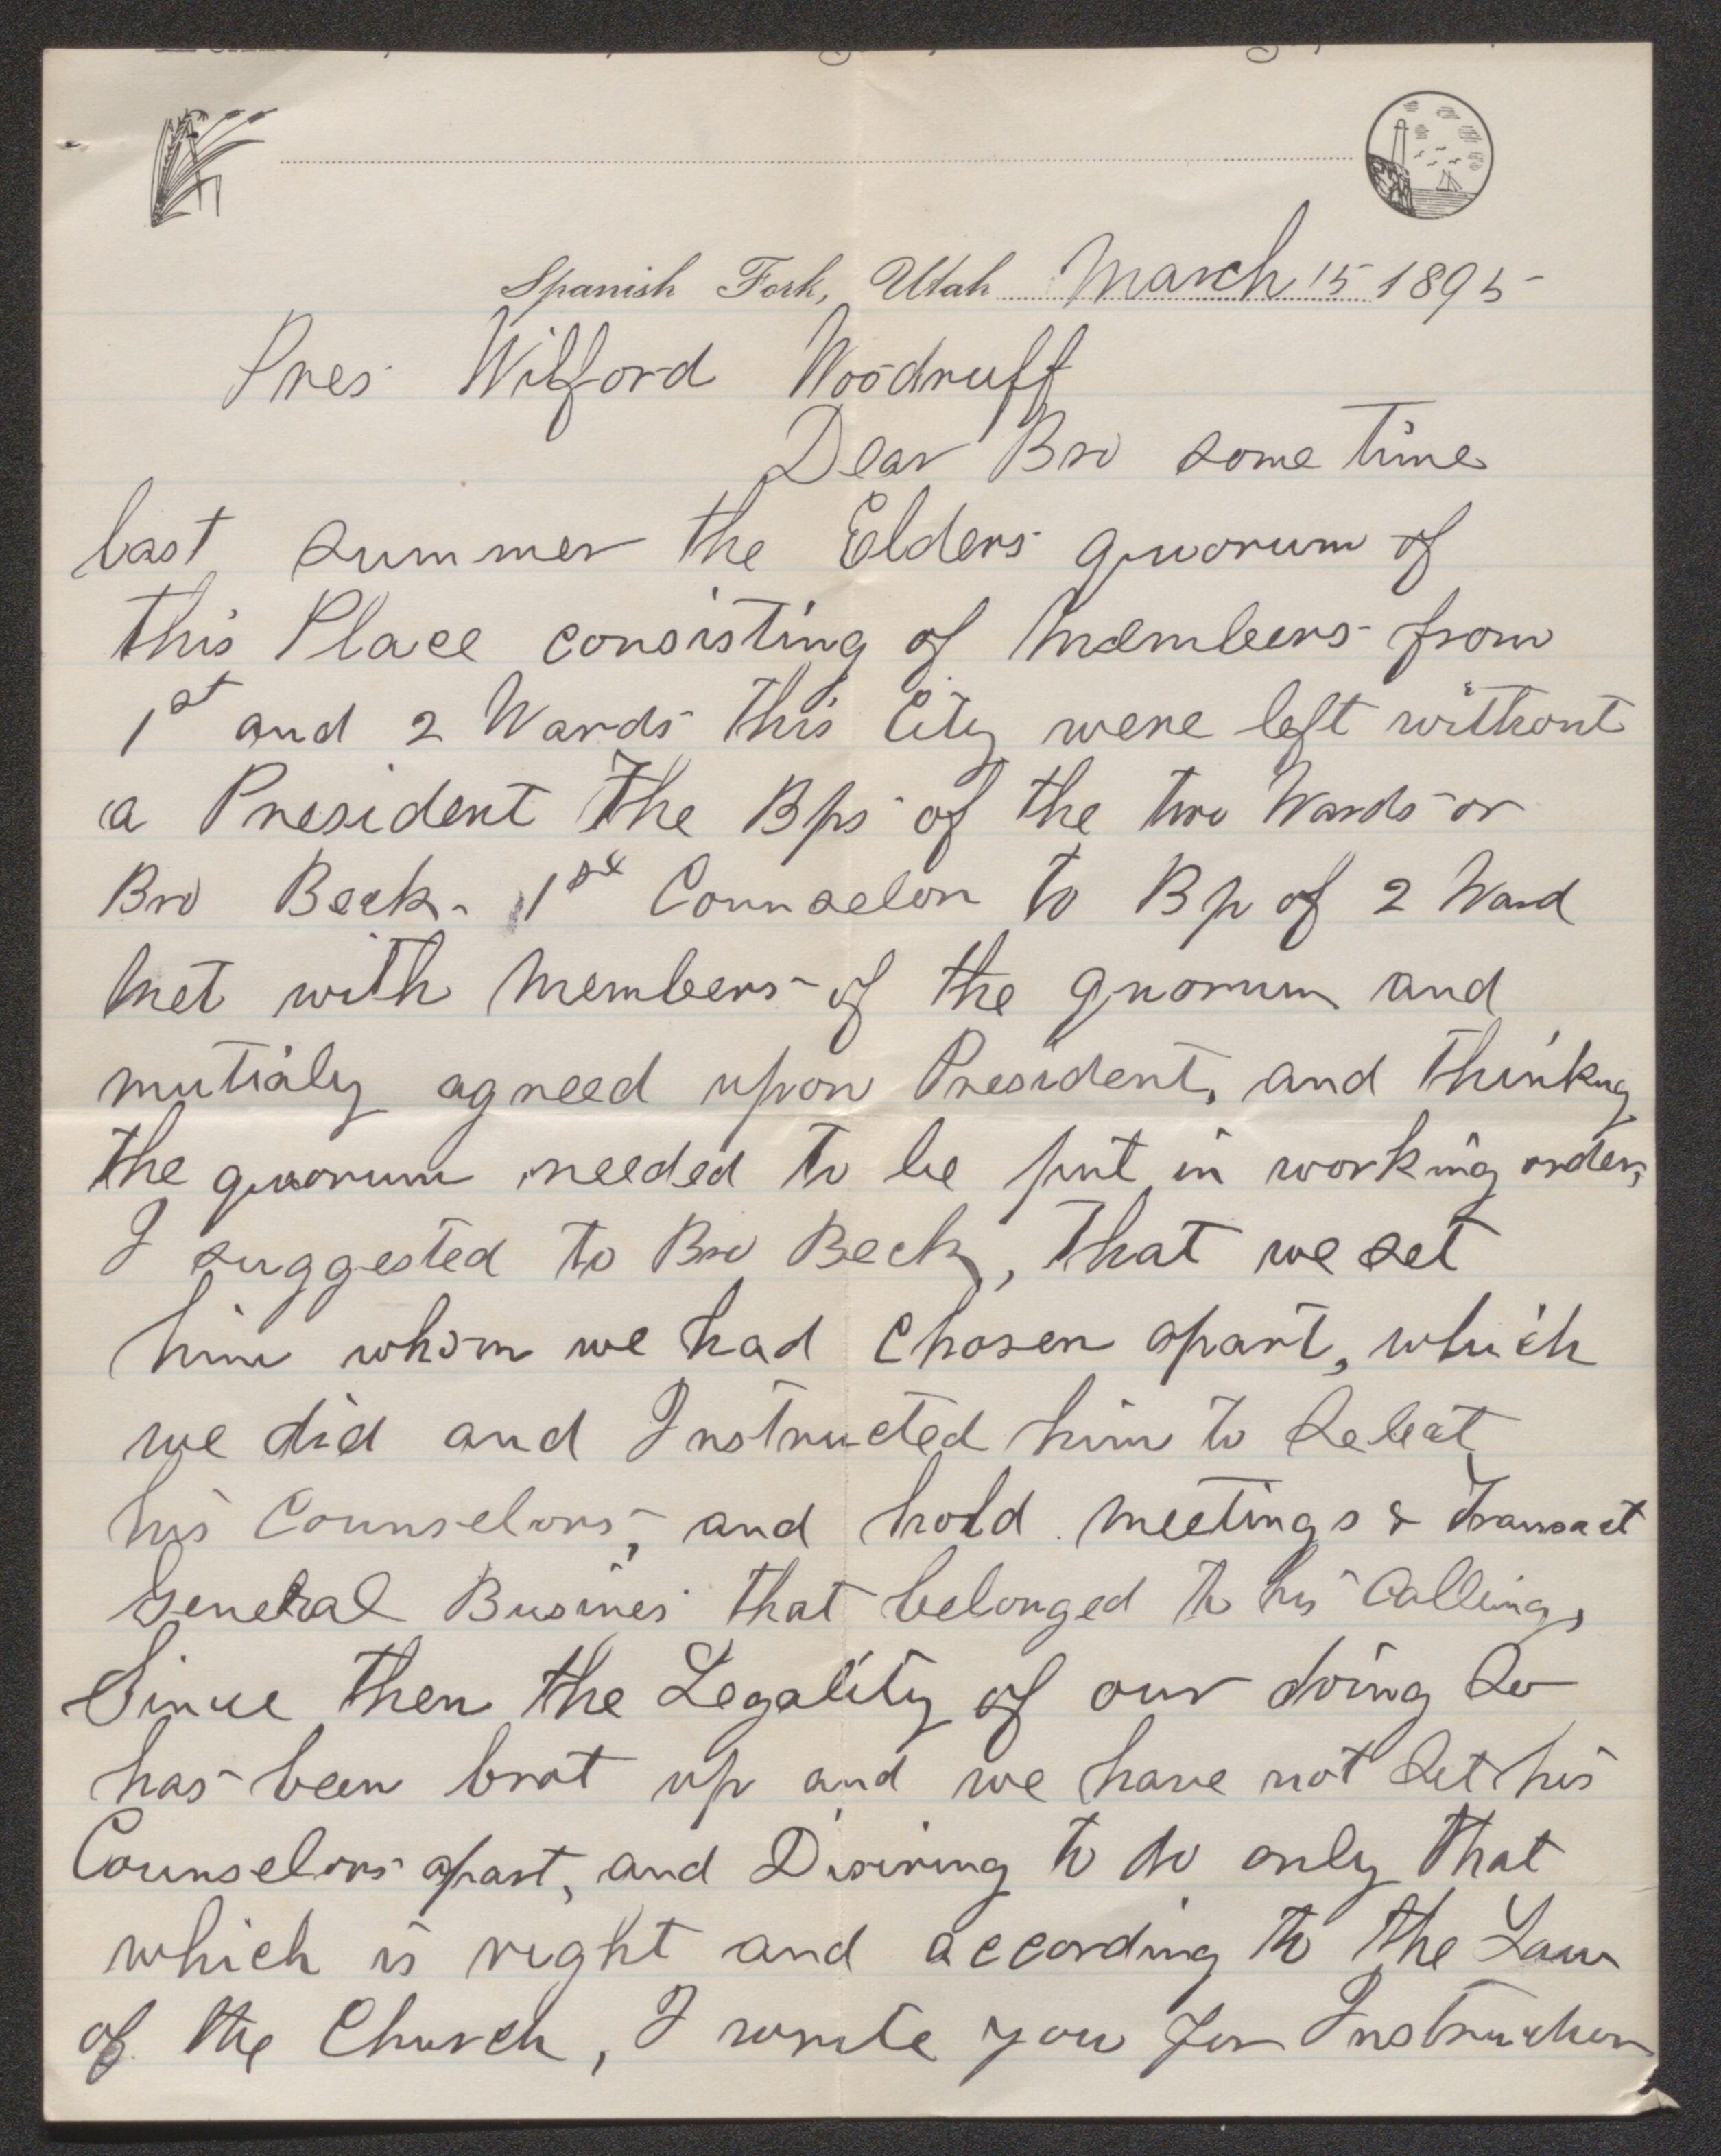 Spanish Fork, Utah March 15 1895
Pres Wilford Woodruff
Dear Bro some time
last summer the Elders quorum of
this Place consisting of Members from
1st and 2 Wards this City were left without
a President The Bps of the two Wards or
Bro Beck 1st Counselor to Bp of 2 Ward
Met with Members of the quorum and
mutialy agreed upon President, and thinking
the quorum needed to be put in working order,
I suggested to Bro Beck, that we set
him whom we had chosen apart, which
we did and Instructed him to Select
his Counselors, and hold meetings & Transact
General Busines that belonged to his Calling,
Since then the Legality of our doing So
has been brot up and we have not Set his
Counselors apart, and Disiring to do only that
which is right and according to the Law
of the Church, I write you for Instruction